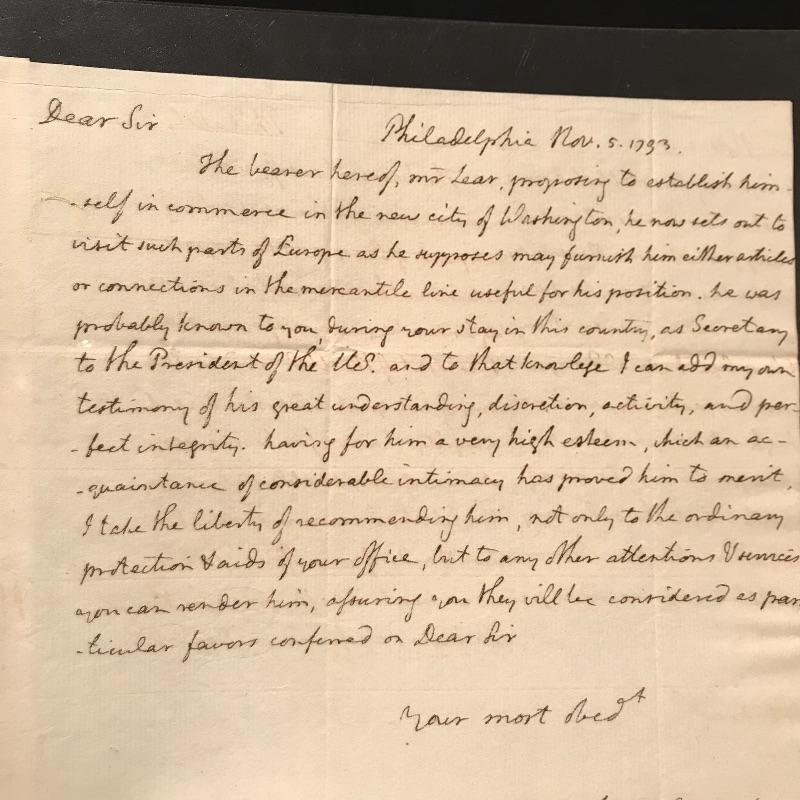 Dear Sir
Philadelphia Nov. 5. 1793.
The bearer hereof, mr Lear, proposing to establish him-
-self in commerce in the new city of Washington, he now sets out to
visit such parts of Europe as he supposes may furnish him either articles
or connections in the mercantile line useful for his position. he was
probably known to you during your stay in this country, as Secretary
to the President of the US. and to that knowlege I can add my own
testimony of his great understanding, discretion, activity, and per-
-fect integrity. having for him a very high esteem, which an ac-
-quaintance of considerable intimacy has proved him to merit,
I take the liberty of recommending him, not only to the ordinary
protection & aids of your office, but to any other attentions & services
you can render him, assuring you they will be considered as par
-ticular favors conferred on Dear Sir
Your most obedt